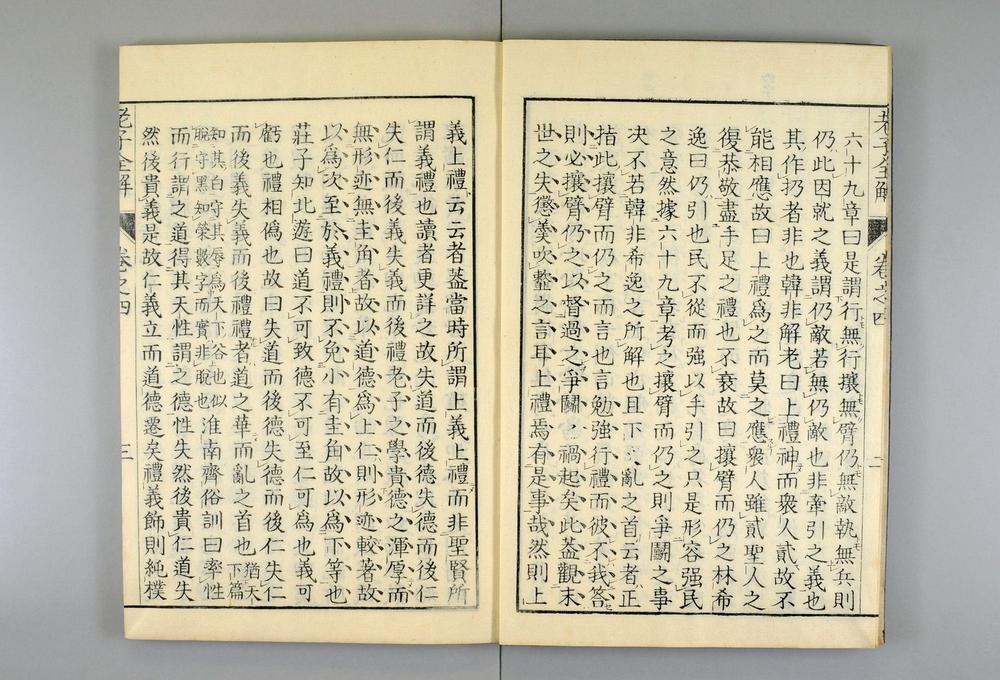 六十九章曰是謂行無行攘無臂仍無敵執無兵則
仍此因就之義謂仍敵若無仍敵也非牽引之義也
其作扔者非也韓非解老曰上禮神而衆人貳故不
能相應故曰上禮爲之而莫之應衆人雖貳聖人之
復恭敬盡手足之禮也不衰故曰攘臂而仍之林希
逸曰仍引也民不從而強以手引之只是形容强民
之意然據六十九章考之攘臂而仍之則爭鬭之事
决不若韓非希逸之所解也且下文亂之首云者正
指此攘臂而仍之而言也言勉強行禮而彼不我答
則必攘臂仍之以督過之爭鬭之禍起矣此葢觀末
世之失懲羮吹韲之言耳上禮焉有是事哉然則上
老子全解 卷之四 二
義上禮云云者葢當時所謂上義上禮而非聖賢所
謂義禮也讀者更詳之故失道而後德失德而後仁
失仁而後義失義而後禮老子之學貴德之渾厚而
無形迹無圭角者故以道德爲上仁則形迹較著故
以爲次至於義禮則不免小有圭角故以爲下等也
莊子知北遊曰道不可致德不可至仁可爲也義可
虧也禮相僞也故曰失道而後德失德而後仁失仁
而後義失義而後禮禮者道之華而亂之首也猶天下篇
知其白守其辱爲天下谷也似脫守黑知榮數字而實非脫也淮南齊俗訓曰率性
而行謂之道得其天性謂之德性失然後貴仁道失
然後貴義是故仁義立而道德遷矣禮義飾則純樸
老子全解 卷之四 三